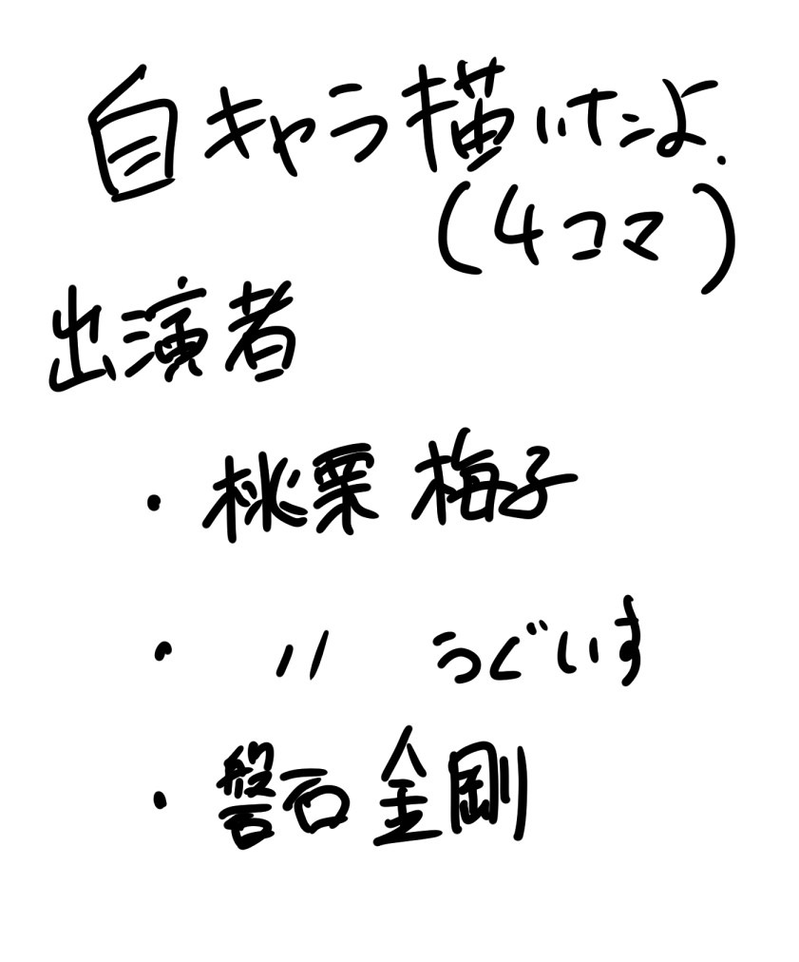 自キャラ描いたよ.
(4コマ)
出演者
・桃栗 梅子
・〃 うぐいす
・磐石 金剛